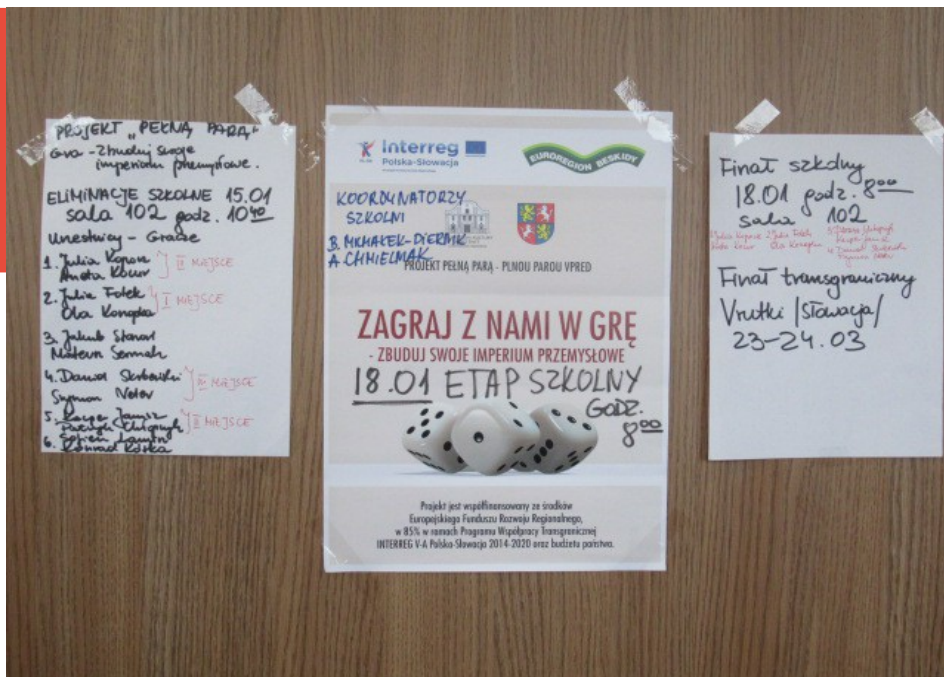 PROJEKT „PEŁNĄ PARĄ"
Gra - Zbuduj swoje
imperium przemysłowe.
ELIMINACJE SZKOLNE 15.01
sala 102 godz. 10⁴⁰
Uczestnicy - Gracze
1. Julia
Aneta
MIEJSCE
2. Julia Fołek
Ola
I MIEJSCE
3. Jakub
Mateusz
4. Dawid
Szymon
MIEJSCE
5. Kacper
Patryk
II MIEJSCE
6.
Konrad
Interreg
Polska-Słowacja
EUROREGION BESKIDY
KOORDYNATORZY
SZKOLNI
B. MICHAŁEK-
A. CHMIELNIAK
PROJEKT PEŁNĄ PARĄ - PLNOU PAROU VPRED
ZAGRAJ Z NAMI W GRĘ
- ZBUDUJ SWOJE IMPERIUM PRZEMYSŁOWE
18.01 ETAP SZKOLNY
GODZ.
8⁰⁰
Projekt jest współfinansowany ze środków
Europejskiego Funduszu Rozwoju Regionalnego,
w 85% w ramach Programu Współpracy Transgranicznej
INTERREG V-A Polska-Słowacja 2014-2020 oraz budżetu państwa.
Finał szkolny
18.01 godz. 8⁰⁰
sala 102
Finał transgraniczny
Vrutki /Słowacja/
23-24.03